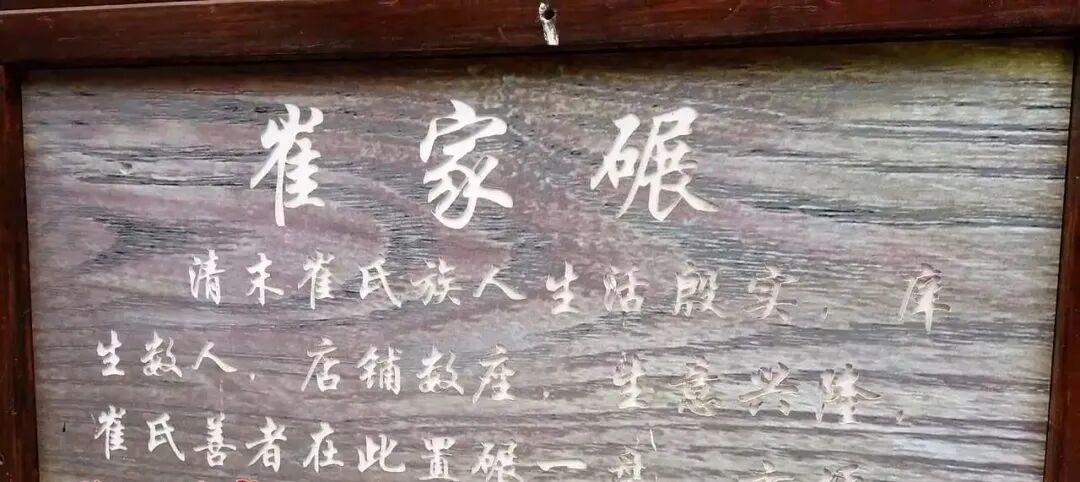 崔家碾
清末崔氏族人生活殷实，库
生数人，店铺数座，生意兴隆，
崔氏善者在此置碾一